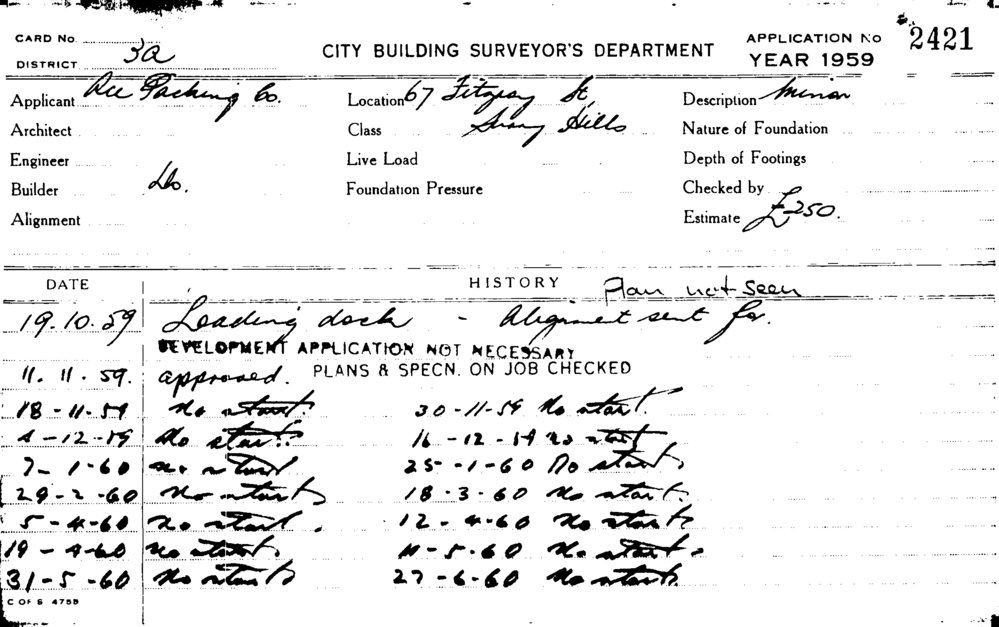 CARD No.
DISTRICT 3a
CITY BUILDING SURVEYOR'S DEPARTMENT
APPLICATION No 2421
YEAR 1959
Applicant Ace Packing Co.
Location 67 Fitzroy St,
Description Minor
Architect
Class Surry Hills
Nature of Foundation
Engineer
Live Load
Depth of Footings
Builder Do.
Foundation Pressure
Checked by
Alignment
Estimate £250.
DATE
HISTORY
Plan not seen
19.10.59 Loading dock - Alignment sent for.
DEVELOPMENT APPLICATION NOT NECESSARY
11.11.59. approved. PLANS & SPECN. ON JOB CHECKED
18-11-59 No start. 30-11-59 No start.
4-12-59 No start. 16-12-59 no start
7-1-60 no start 25-1-60 No start.
29-2-60 No start 18-3-60 No start.
5-4-60 no start. 12-4-60 No start
19-4-60 no start. 11-5-60 No start.
31-5-60 No start 27-6-60 No start.
C OF S 4758